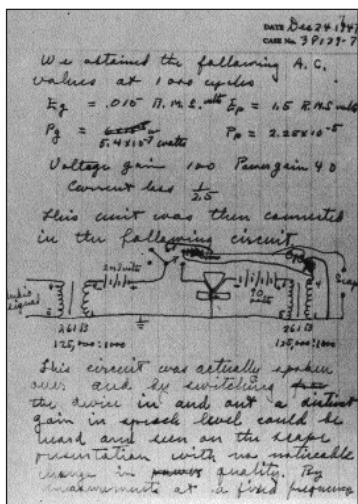 DATE Dec 24 1947
CASE No. 38139-7
We obtained the following A.C.
values at 1000 cycles
Eg = .015 R.M.S. volts Ep = 1.5 R.M.S volts
Pg = 5.4 x 10⁻⁷ watts Pp = 2.25 x 10⁻⁵
Voltage gain 100 Power gain 40
Current loss 1/2.5
This unit was then connected
in the following circuit
signal
261B
125,000:1000
261B
125,000:1000
This circuit was actually spoken
over and by switching
the device in and out a distinct
gain in speech level could be
heard and seen on the scope
presentation with no noticeable
change in quality. By
measurements at a fixed frequency